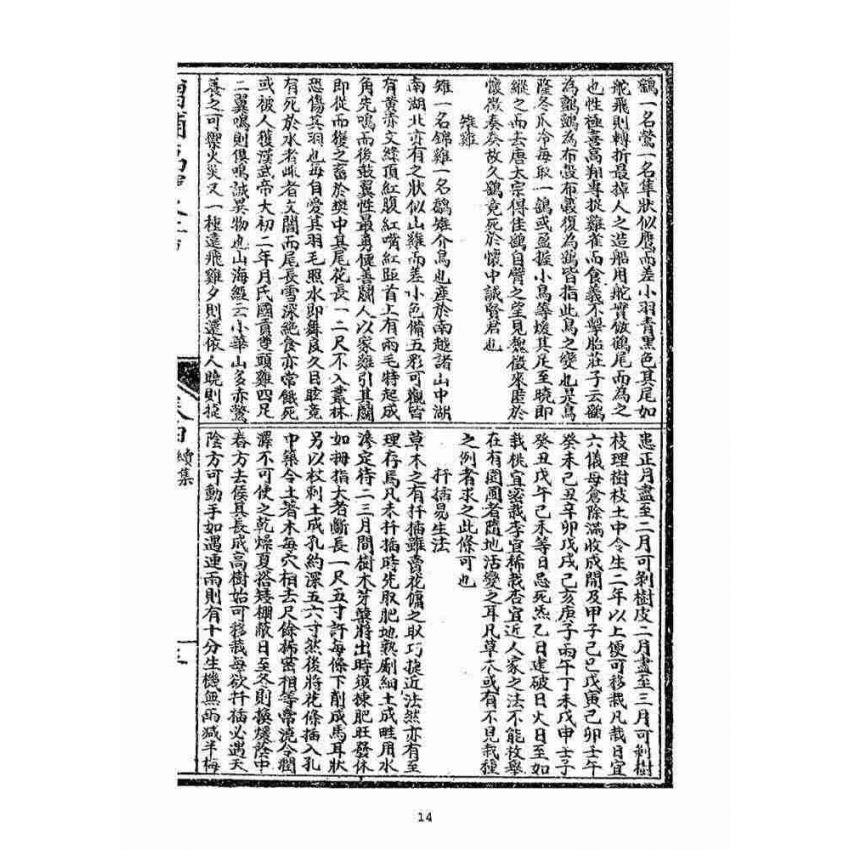 鸇一名鶯一名隼狀似鷹而差小羽青黑色其尾如
舵飛則轉折最掉人之造船用舵實倣鸇尾而為之
也性極喜高翔專捉雞雀而食義不擊胎莊子云鷂
為鸇鸇為布穀布穀復為鷂皆指此鳥之變也是鳥
隆冬爪冷每取一鴿或盈握小鳥等煖其足至曉即
縱之而去唐太宗得佳鷂自臂之望見魏徵來匿於
懷徵奏奏故久鷂竟死於懷中誠賢君也
雉雞
雉一名錦雞一名鷮雉介鳥也產於南越諸山中湖
南湖北亦有之狀似山雞而差小色備五彩可觀皆
有黃赤文綠頂紅腹紅嘴紅距首上有兩毛特起成
角先鳴而後鼓翼性最勇健善鬬人以家雞引其鬬
即從而獲之畜於樊中其尾花長一二尺不入叢林
恐傷其羽也每自愛其羽毛照水即舞良久目眩竟
有死於水者雌者文闇而尾長雪深絕食亦常餓死
或被人獲漢武帝大初二年月氏國貢雙頭雞四足
二翼鳴則俱鳴誠異物也山海經云小華山多赤鷩
養之可禦火災又一種遠飛雞夕則還依人曉則從
悉正月盡至二月可剝樹皮二月盡至三月可剝樹
枝理樹枝土中令生二年以上便可移栽凡栽日宜
六儀母倉除滿收成開及甲子己巳戊寅己卯壬午
癸未己丑辛卯戊戌己亥庚子丙午丁未戊申壬子
癸丑戊午己未等日忌死炁乙日建破日火日至如
栽桃宜密栽李宜稀栽杏宜近人家之法不能枚舉
在有園圃者隨地活變之耳凡草木或有不見栽種
之例者求之此條可也
扦插易生法
草木之有扦插雖賣花傭之取巧捷近法然亦有至
理存焉凡未扦插時先取肥地熟劚細土成畦用水
滲定待二三月間樹木芽櫱將出時須揀肥旺發休
如拇指大者斷長一尺五寸許每條下削成馬耳狀
另以杖刺土成孔約深五六寸然後將花條插入孔
中築令土著木每穴相去尺餘稀密相等常澆令潤
澤不可使之乾燥夏搭矮棚蔽日至冬則換煖蔭中
春方去候其長成高樹始可移栽每欲扦插必遇天
陰方可動手如遇連雨則有十分生機無雨減半梅
續集
三
14